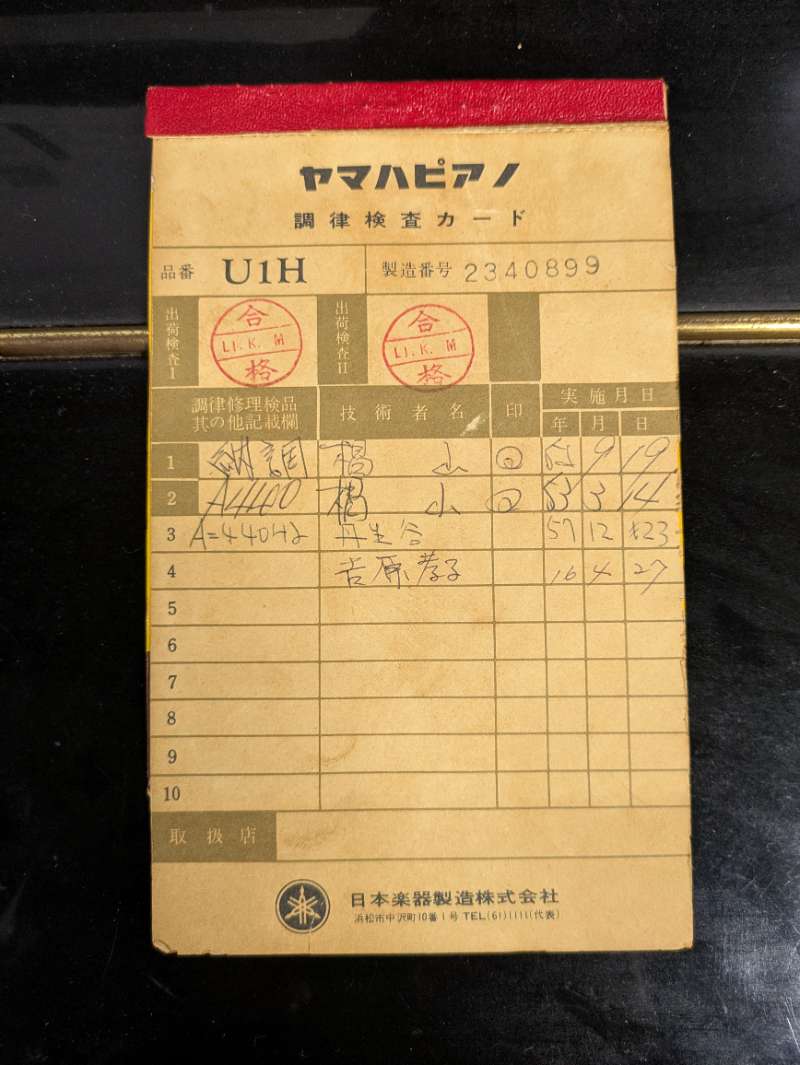 ヤマハピアノ
調律検査カード
品番 U1H 製造番号 2340899
出荷検査I 合格 LI.K.M 出荷検査II 合格 LI.K.M
調律修理検品其の他記載欄 技術者名 印 実施月日
年 月 日
1 納調 山 9 19
2 A4400 山 53 3 14
3 A=440Hz 丹生谷 57 12 23
4 吉原孝子 16 4 27
5
6
7
8
9
10
取扱店
日本楽器製造株式会社
浜松市中沢町10番1号 TEL(61)1111(代表)